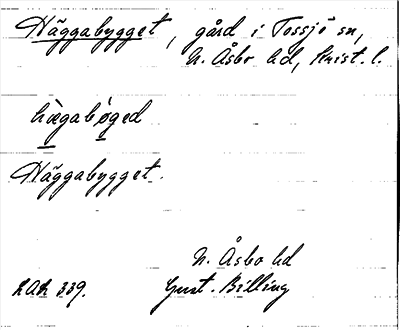 Häggabygget, gård i Tossjö sn,
N. Åsbo hd, Krist. l.
hägabøged
Häggabygget.
N. Åsbo hd
LAL 339. Gust. Billing